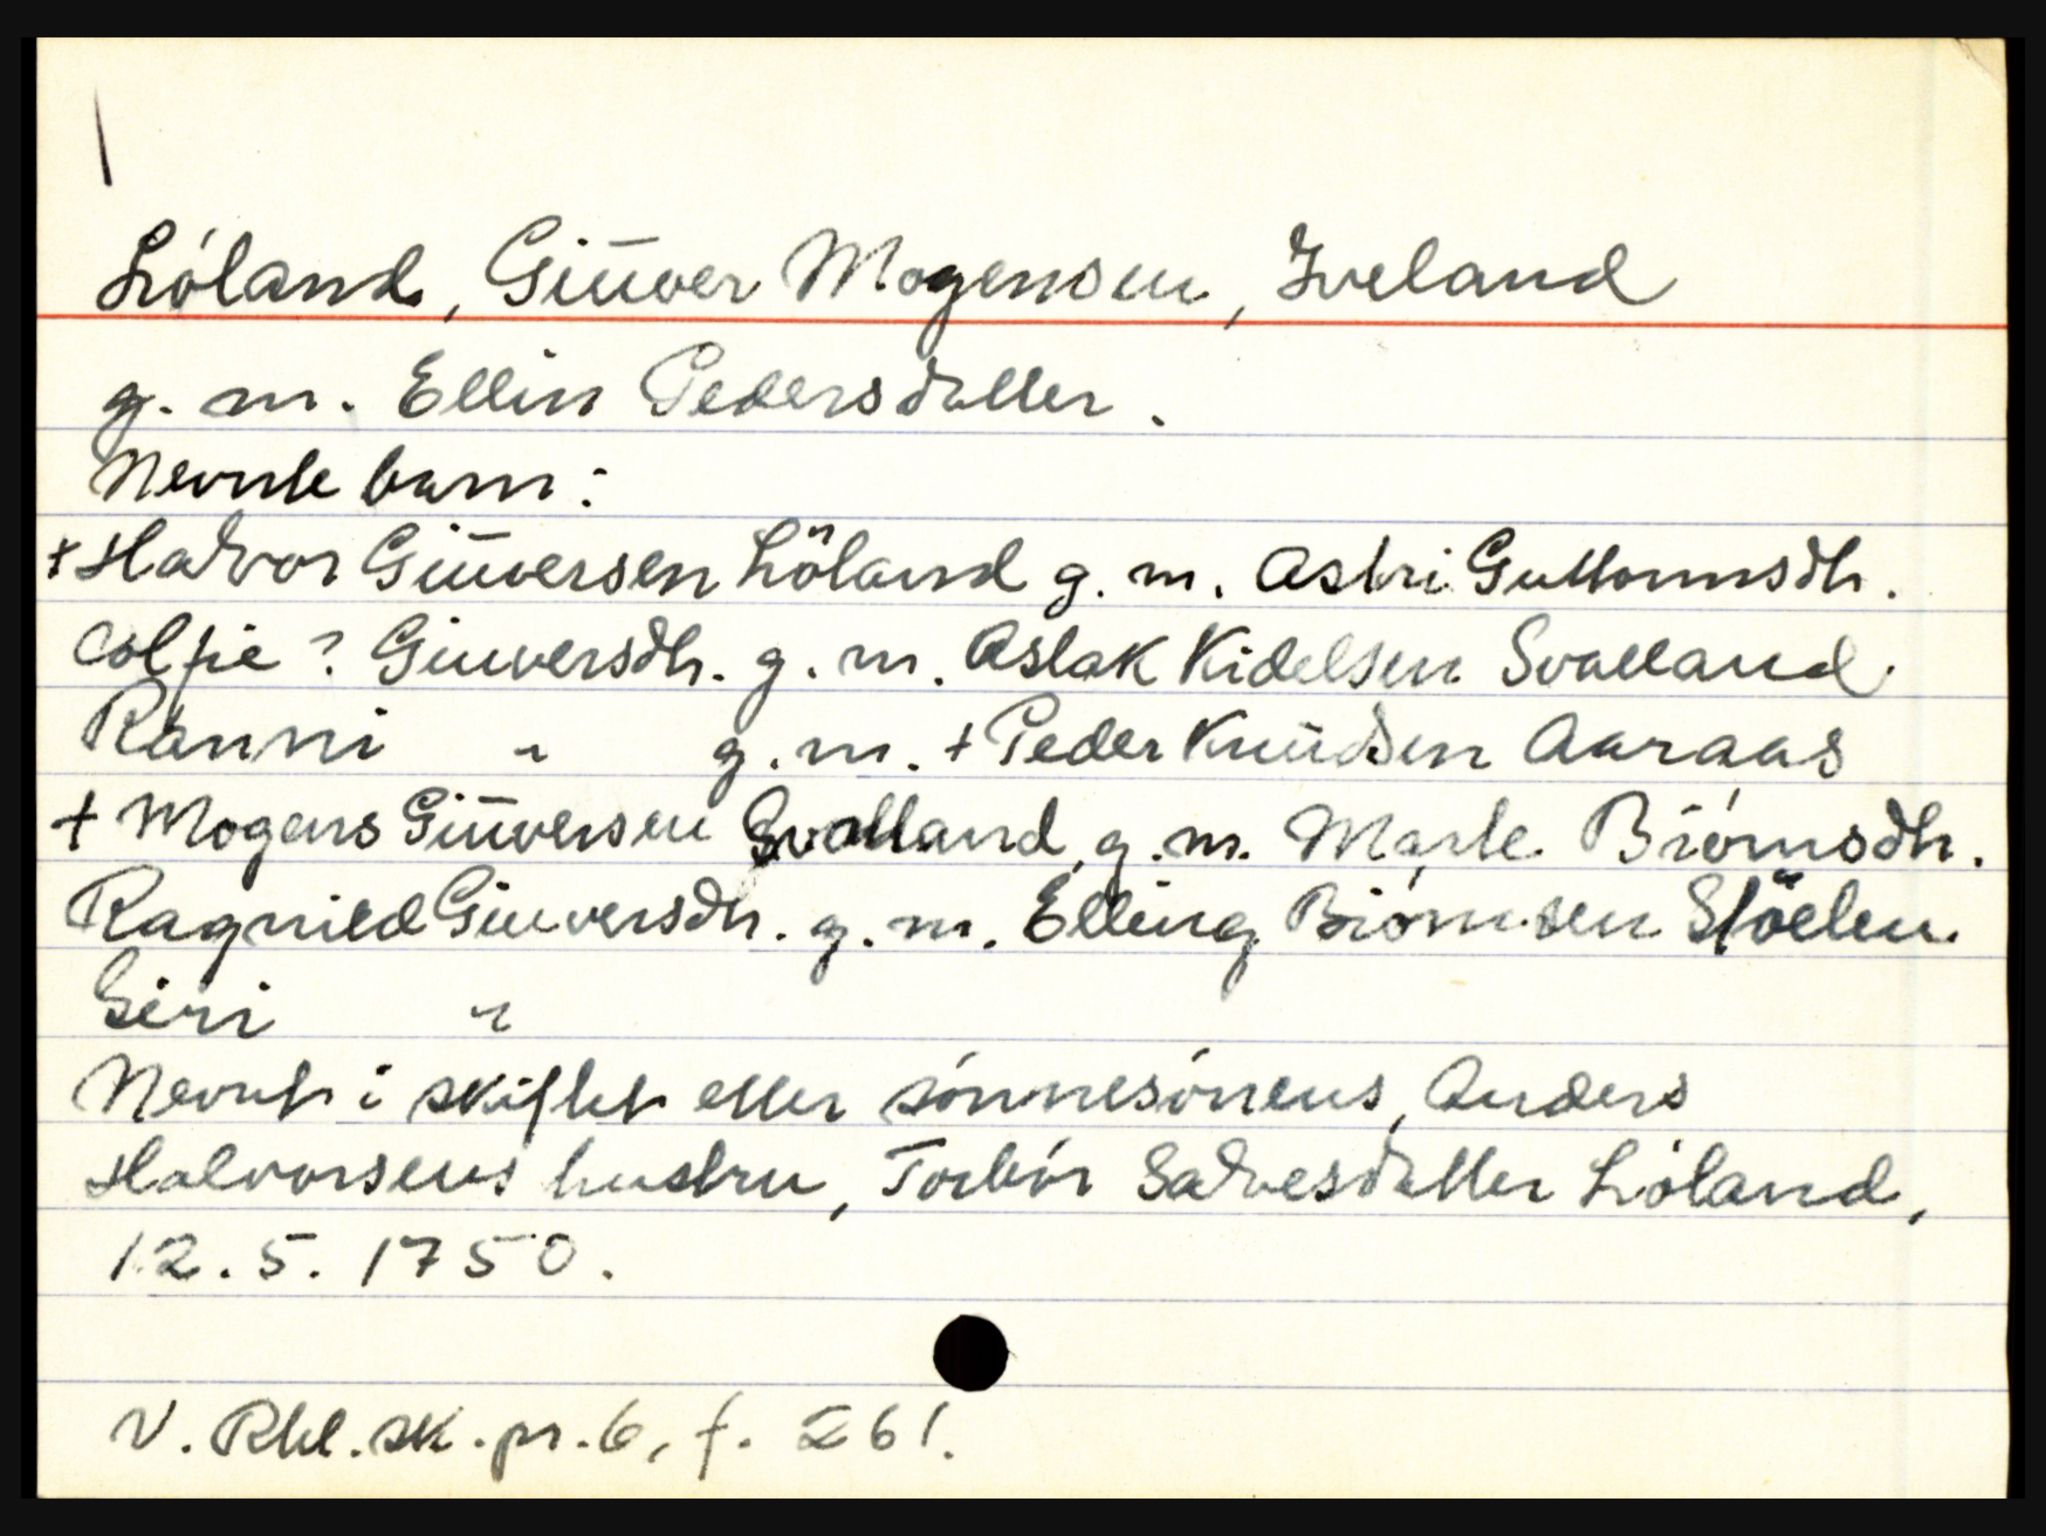 Lóland, Giūver Mogensen, Iveland
g. m. Ellin Pedersdatter.
Nevnte barn:
+ Halvor Giūversen Löland g. m. Astri Guttormsdtr.
? Giuversdtr. g. m. Aslak Kidelsen Svalland
Ranni " g. m. + Peder Knūdsen Aaraas
+ Mogens Giūversen Svalland, g. m. Marte Biórnsdtr.
Ragnild Giuversdtr. g. m. Elling Biórnsen Stöelen
Siri "
Nevnt i skiftet etter sónnesónens, Anders
Halvorsens hustru, Torbór Salvesdatter Lóland,
12. 5. 1750.
V. Rbl. sk. pr. 6, f. 261.